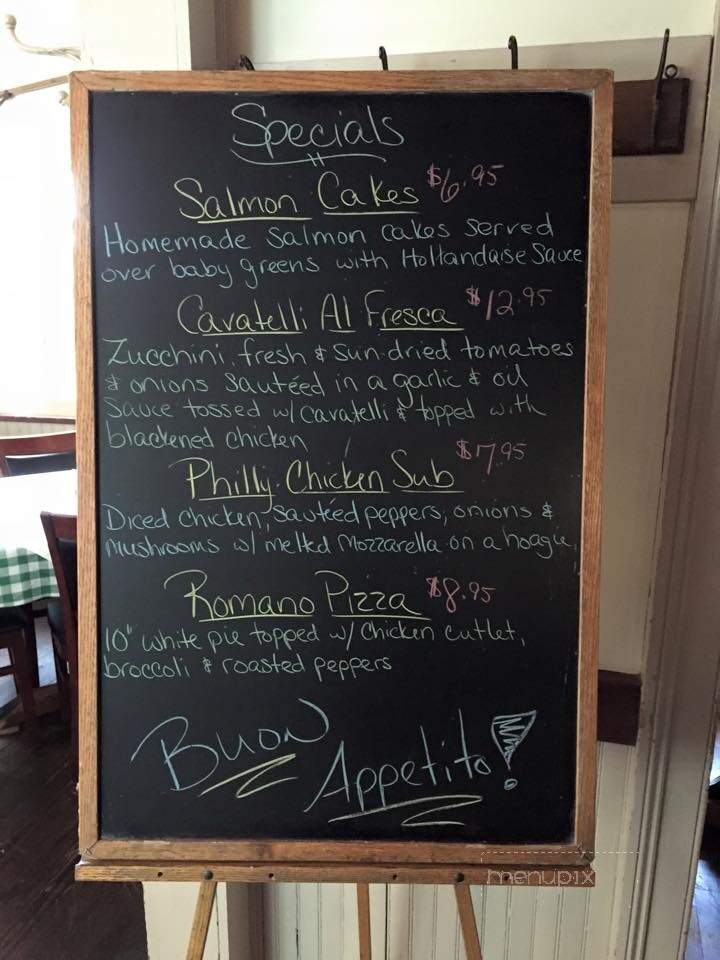 Specials
Salmon Cakes $6.95
Homemade Salmon cakes served
over baby greens with Hollandaise Sauce
Cavatelli Al Fresca $12.95
Zucchini, fresh & sun-dried tomatoes
& onions sautéed in a garlic & oil
Sauce tossed w/ Cavatelli & topped with
blackened chicken
Philly Chicken Sub $7.95
Diced chicken, sautéed peppers, onions &
mushrooms w/ melted Mozzarella on a hoagie.
Romano Pizza $8.95
10" white pie topped w/ Chicken cutlet,
broccoli & roasted peppers
Buon
Appetito!
menupix